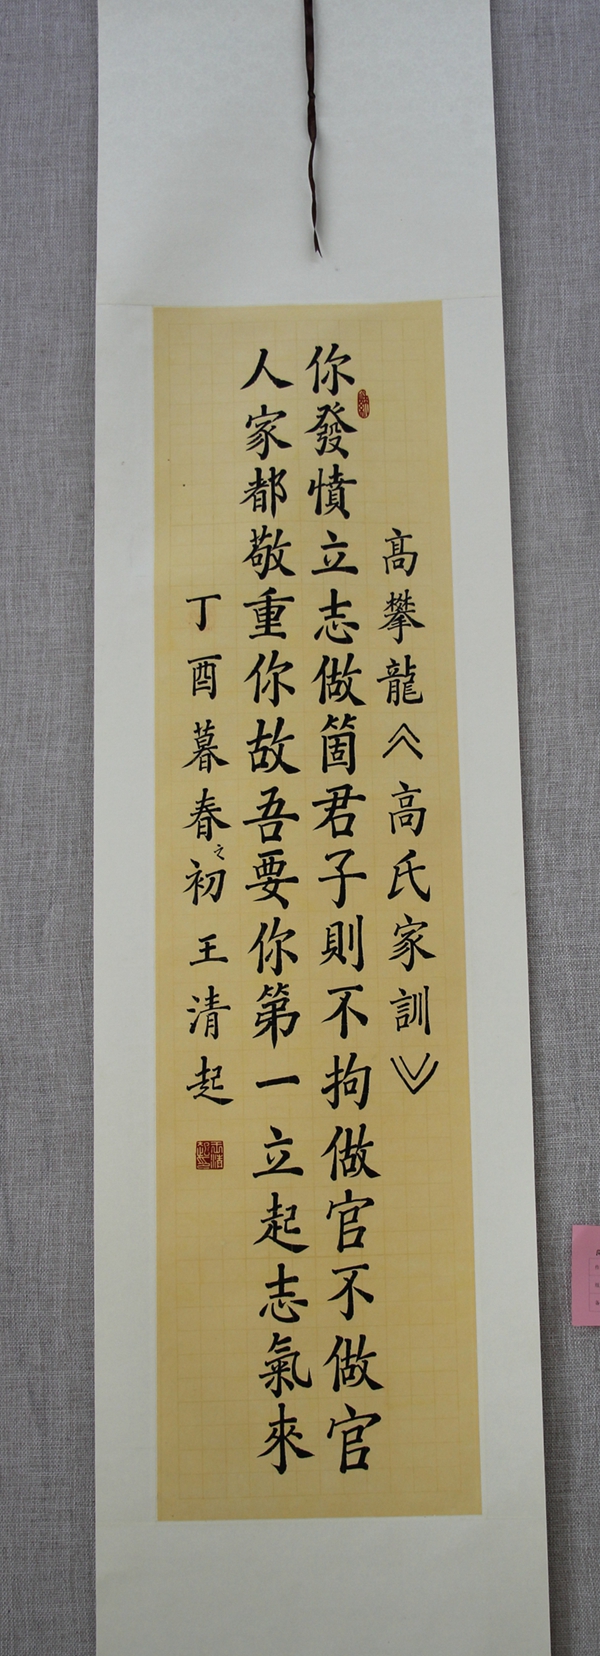 高攀龍《高氏家訓》
你發憤立志做箇君子則不拘做官不做官
人家都敬重你故吾要你第一立起志氣來
丁酉暮春之初王清起